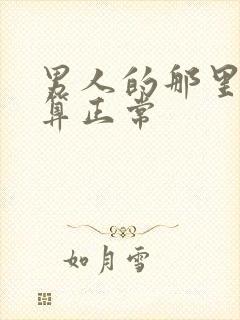 男人的那里
算正常
如月雪